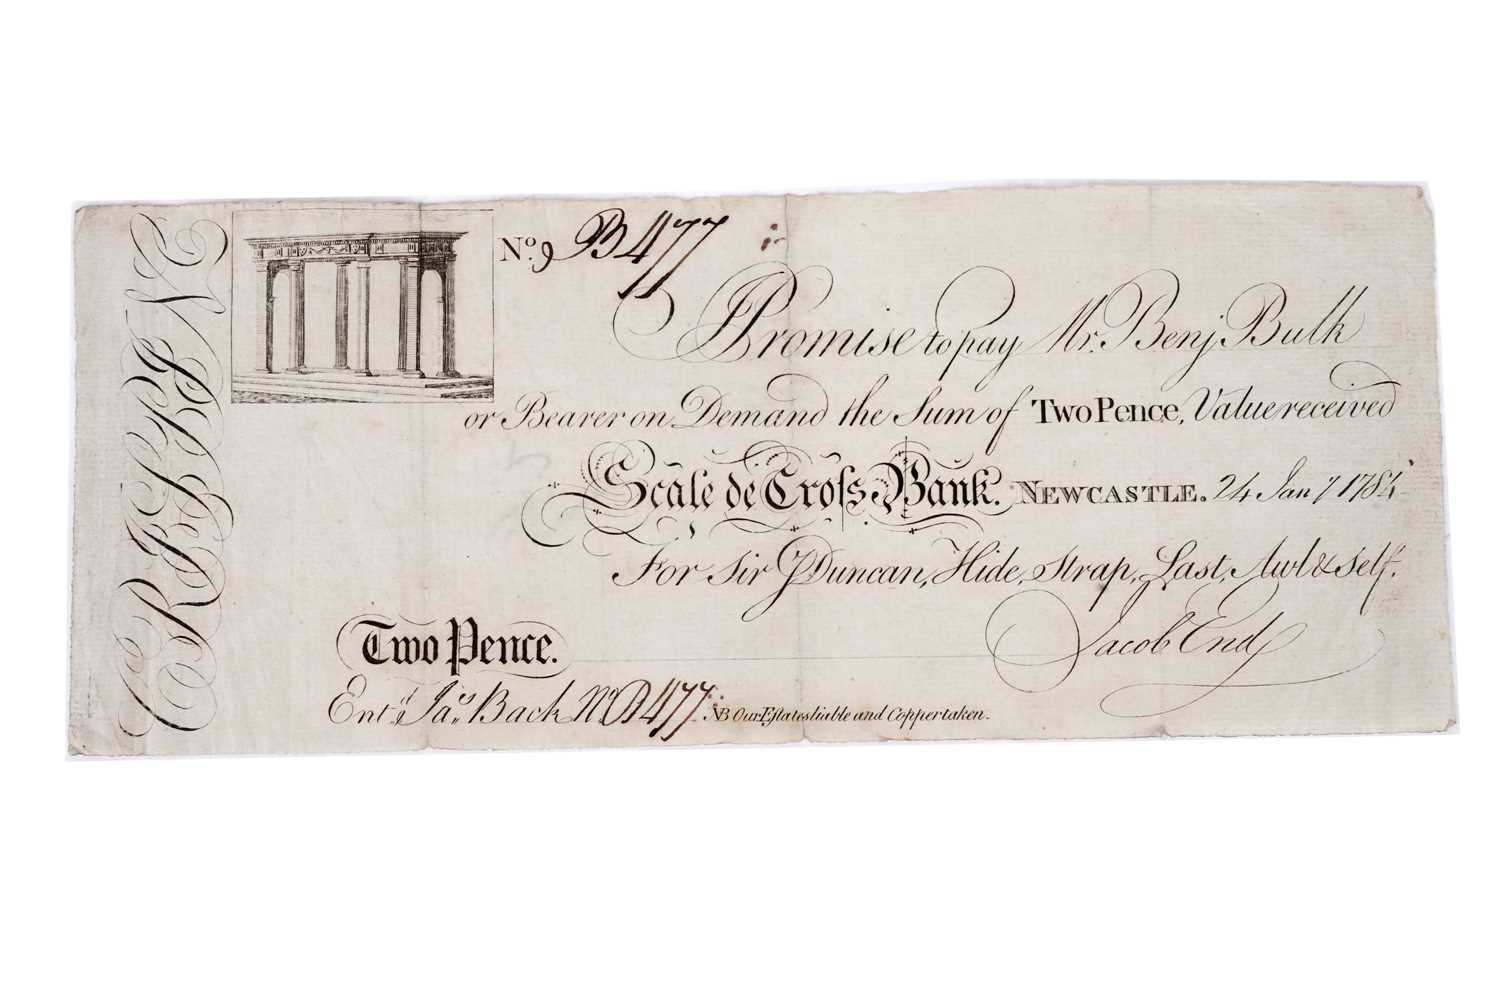 CRISPINE
No. 9 B477
I Promise to pay Mr. Benj Bulk
or Bearer on Demand the Sum of Two Pence, Value received
Scale de Cross Bank. NEWCASTLE. 24 Jany 1784
For Sir J Duncan, Hide, Strap, Last, Awl & self.
Jacob End
Two Pence.
Entd. Jas. Back No B477 NB Our Estates liable and Copper taken.